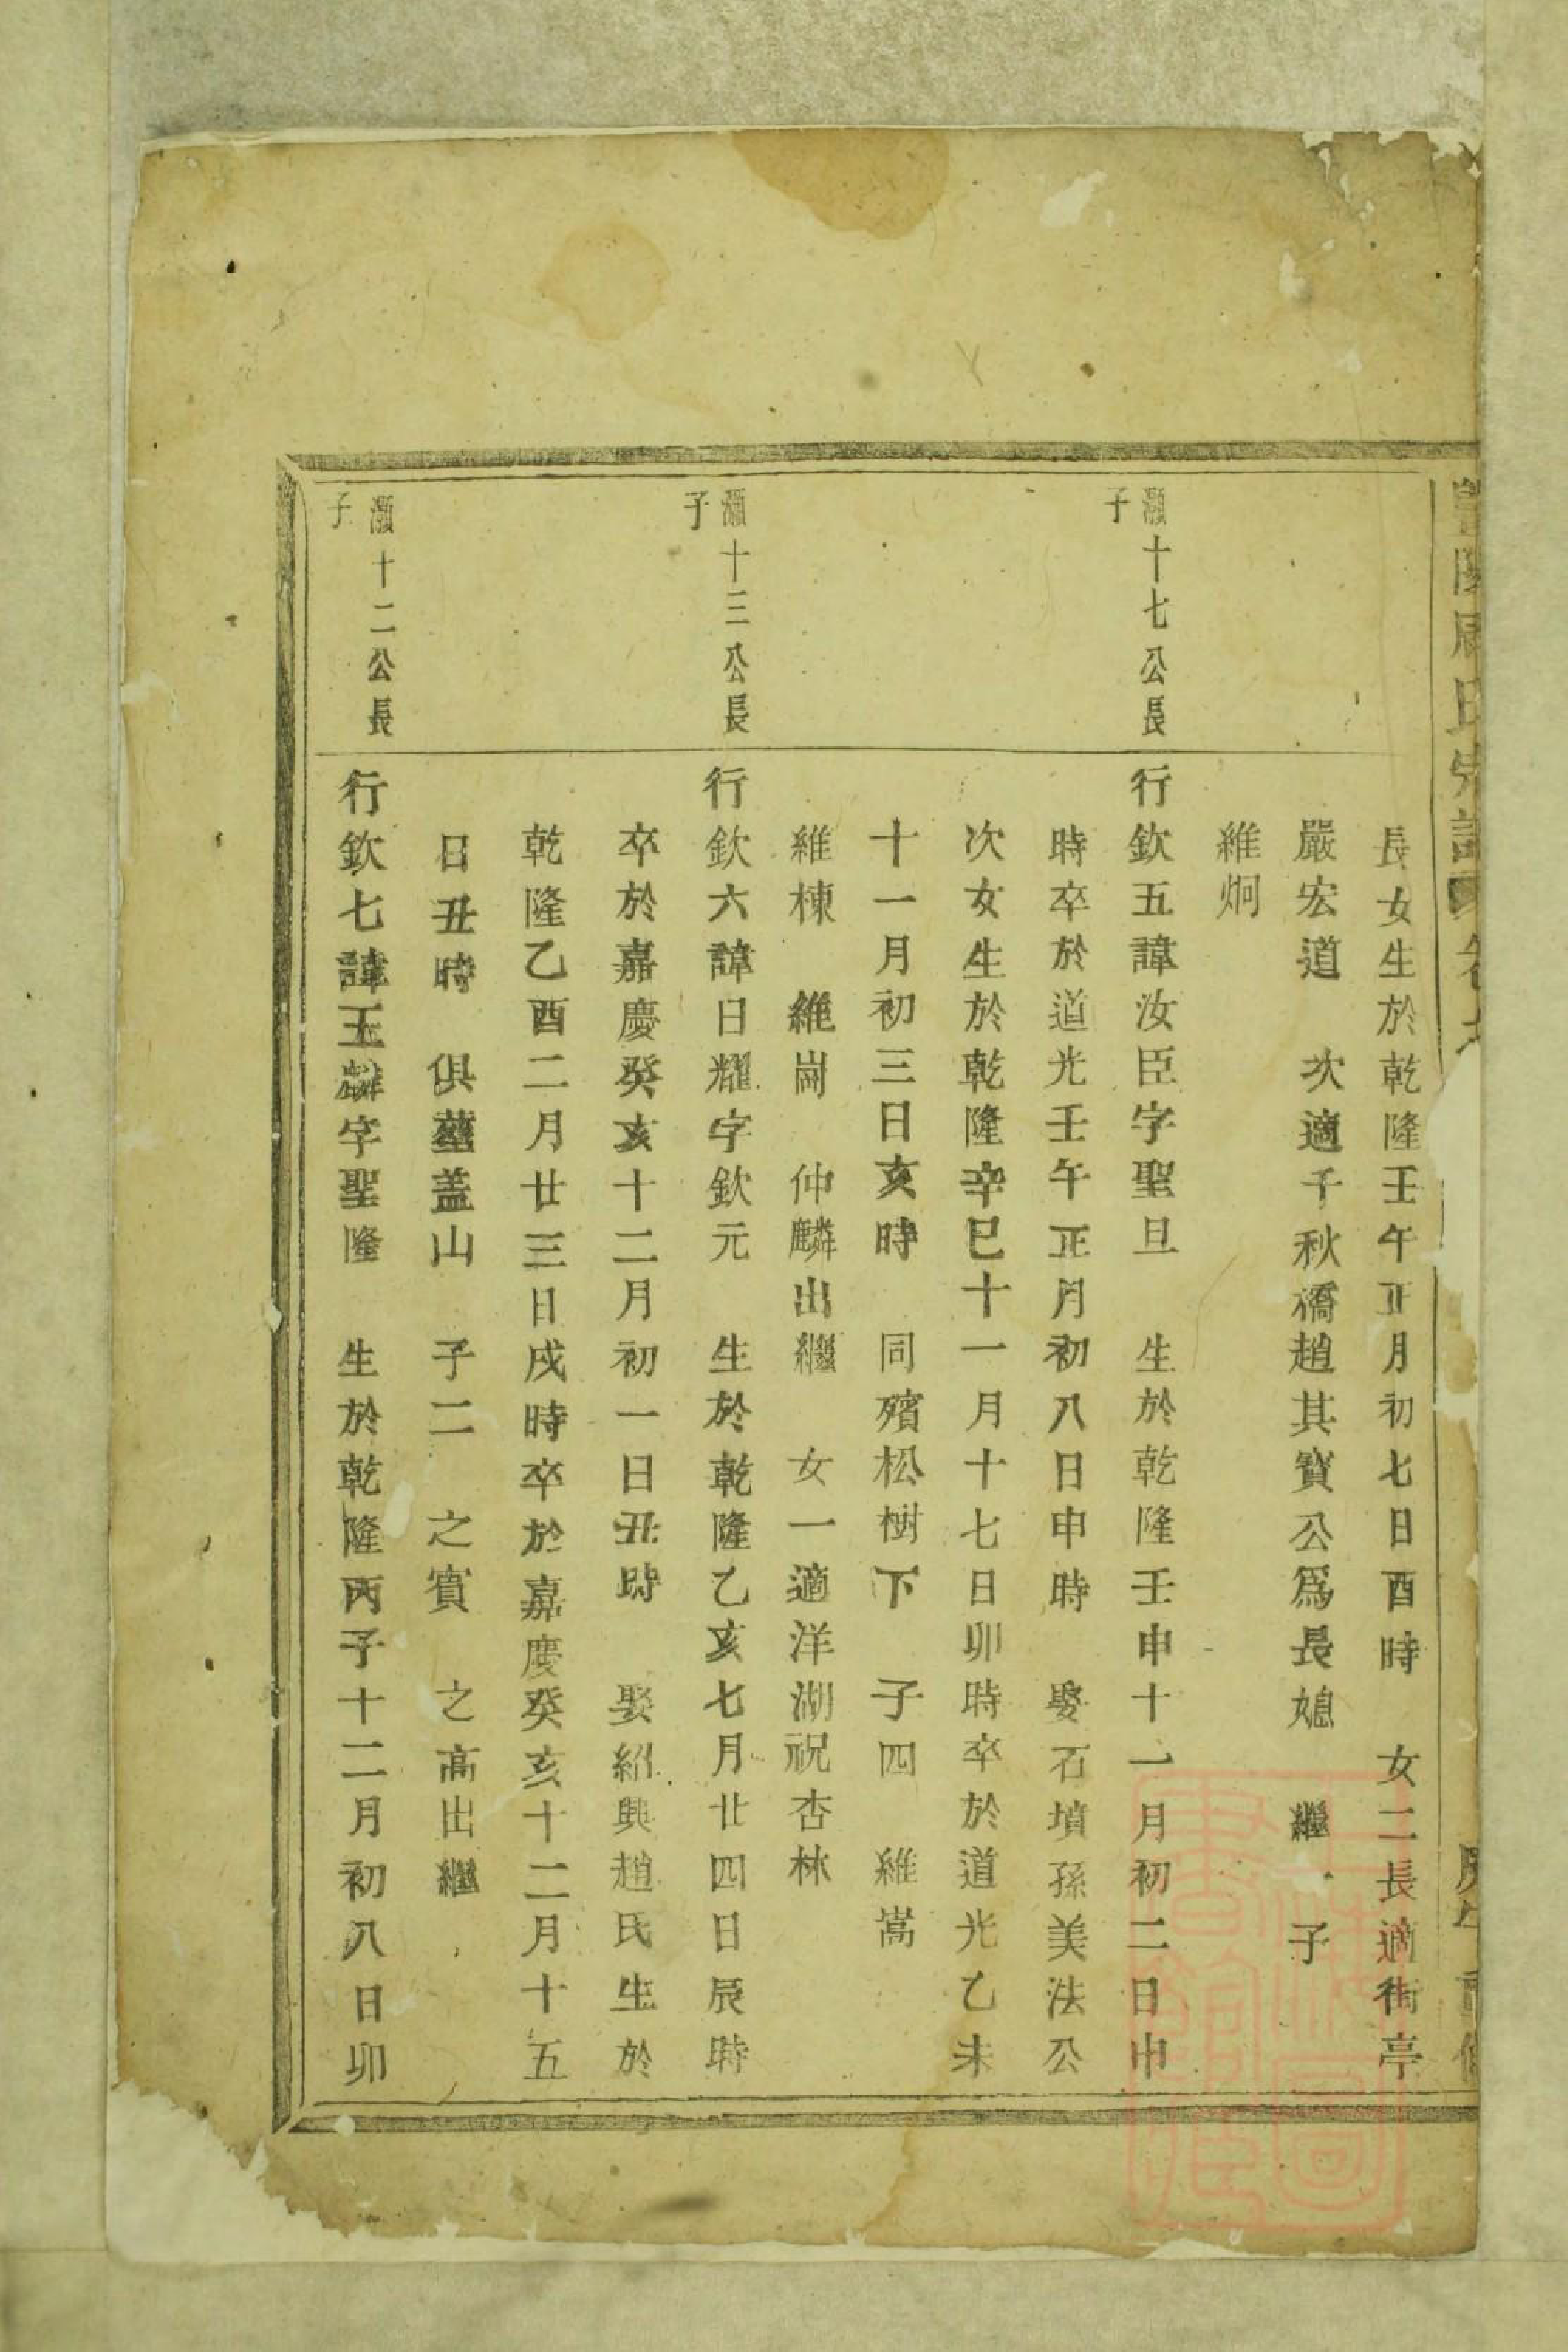 周氏宗譜
長女生於乾隆壬午正月初七日酉時　女二長適街亭
嚴宏道　次適千秋橋趙其寶公爲長媳　繼子
維炯
灝十七公長
子
行欽五諱汝臣字聖旦　生於乾隆壬申十一月初二日申
時卒於道光壬午正月初八日申時　娶石墳孫美法公
次女生於乾隆辛巳十一月十七日卯時卒於道光乙未
十一月初三日亥時　同殯松樹下　子四　維嵩
維棟　維崗　仲麟出繼　女一適洋湖祝杏林
灝十三公長
子
行欽六諱日耀字欽元　生於乾隆乙亥七月廿四日辰時
卒於嘉慶癸亥十二月初一日丑時　娶紹興趙氏生於
乾隆乙酉二月廿三日戌時卒於嘉慶癸亥十二月十五
日丑時　俱塟盖山　子二　之賓　之高出繼
灝十二公長
子
行欽七諱玉麟字聖隆　生於乾隆丙子十二月初八日卯